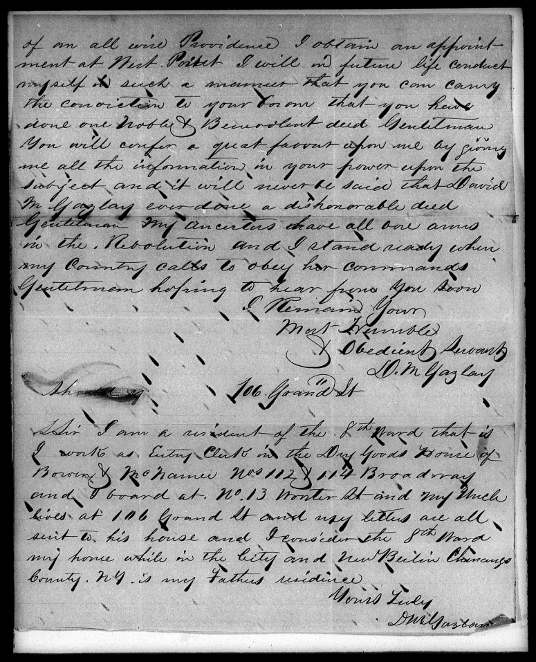 of an all wise Providence I obtain an appoint-
ment at West Point I will in future life conduct
myself in such a manner that you can carry
the conviction to your bosom that you have
done one Noble & Benevolent deed Gentleman
You will confer a great favour upon me by giving
me all the information in your power upon the
subject and it will never be said that David
M Gazlay ever done a dishonorable deed
Gentleman My Ancestors have all bore arms
in the Revolution and I stand ready when
my Country calls to obey her commands
Gentleman hoping to hear from you soon
I Remain Your
Most Humble
& Obedient Servant
D. M Gazlay
106 Grand St
Sir I am a resident of the 8th Ward that is
I work as Entry Clerk in the Dry Goods House of
Bowen & McNamee Nos 112 & 114 Broadway
and I board at No. 13 Wooster St and my Uncle
lives at 106 Grand St and my letters are all
sent to his house and I consider the 8th Ward
my home while in the City and New Berlin Chenango
County. NY. is my Fathers residence
Yours Truly
D M Gazlay